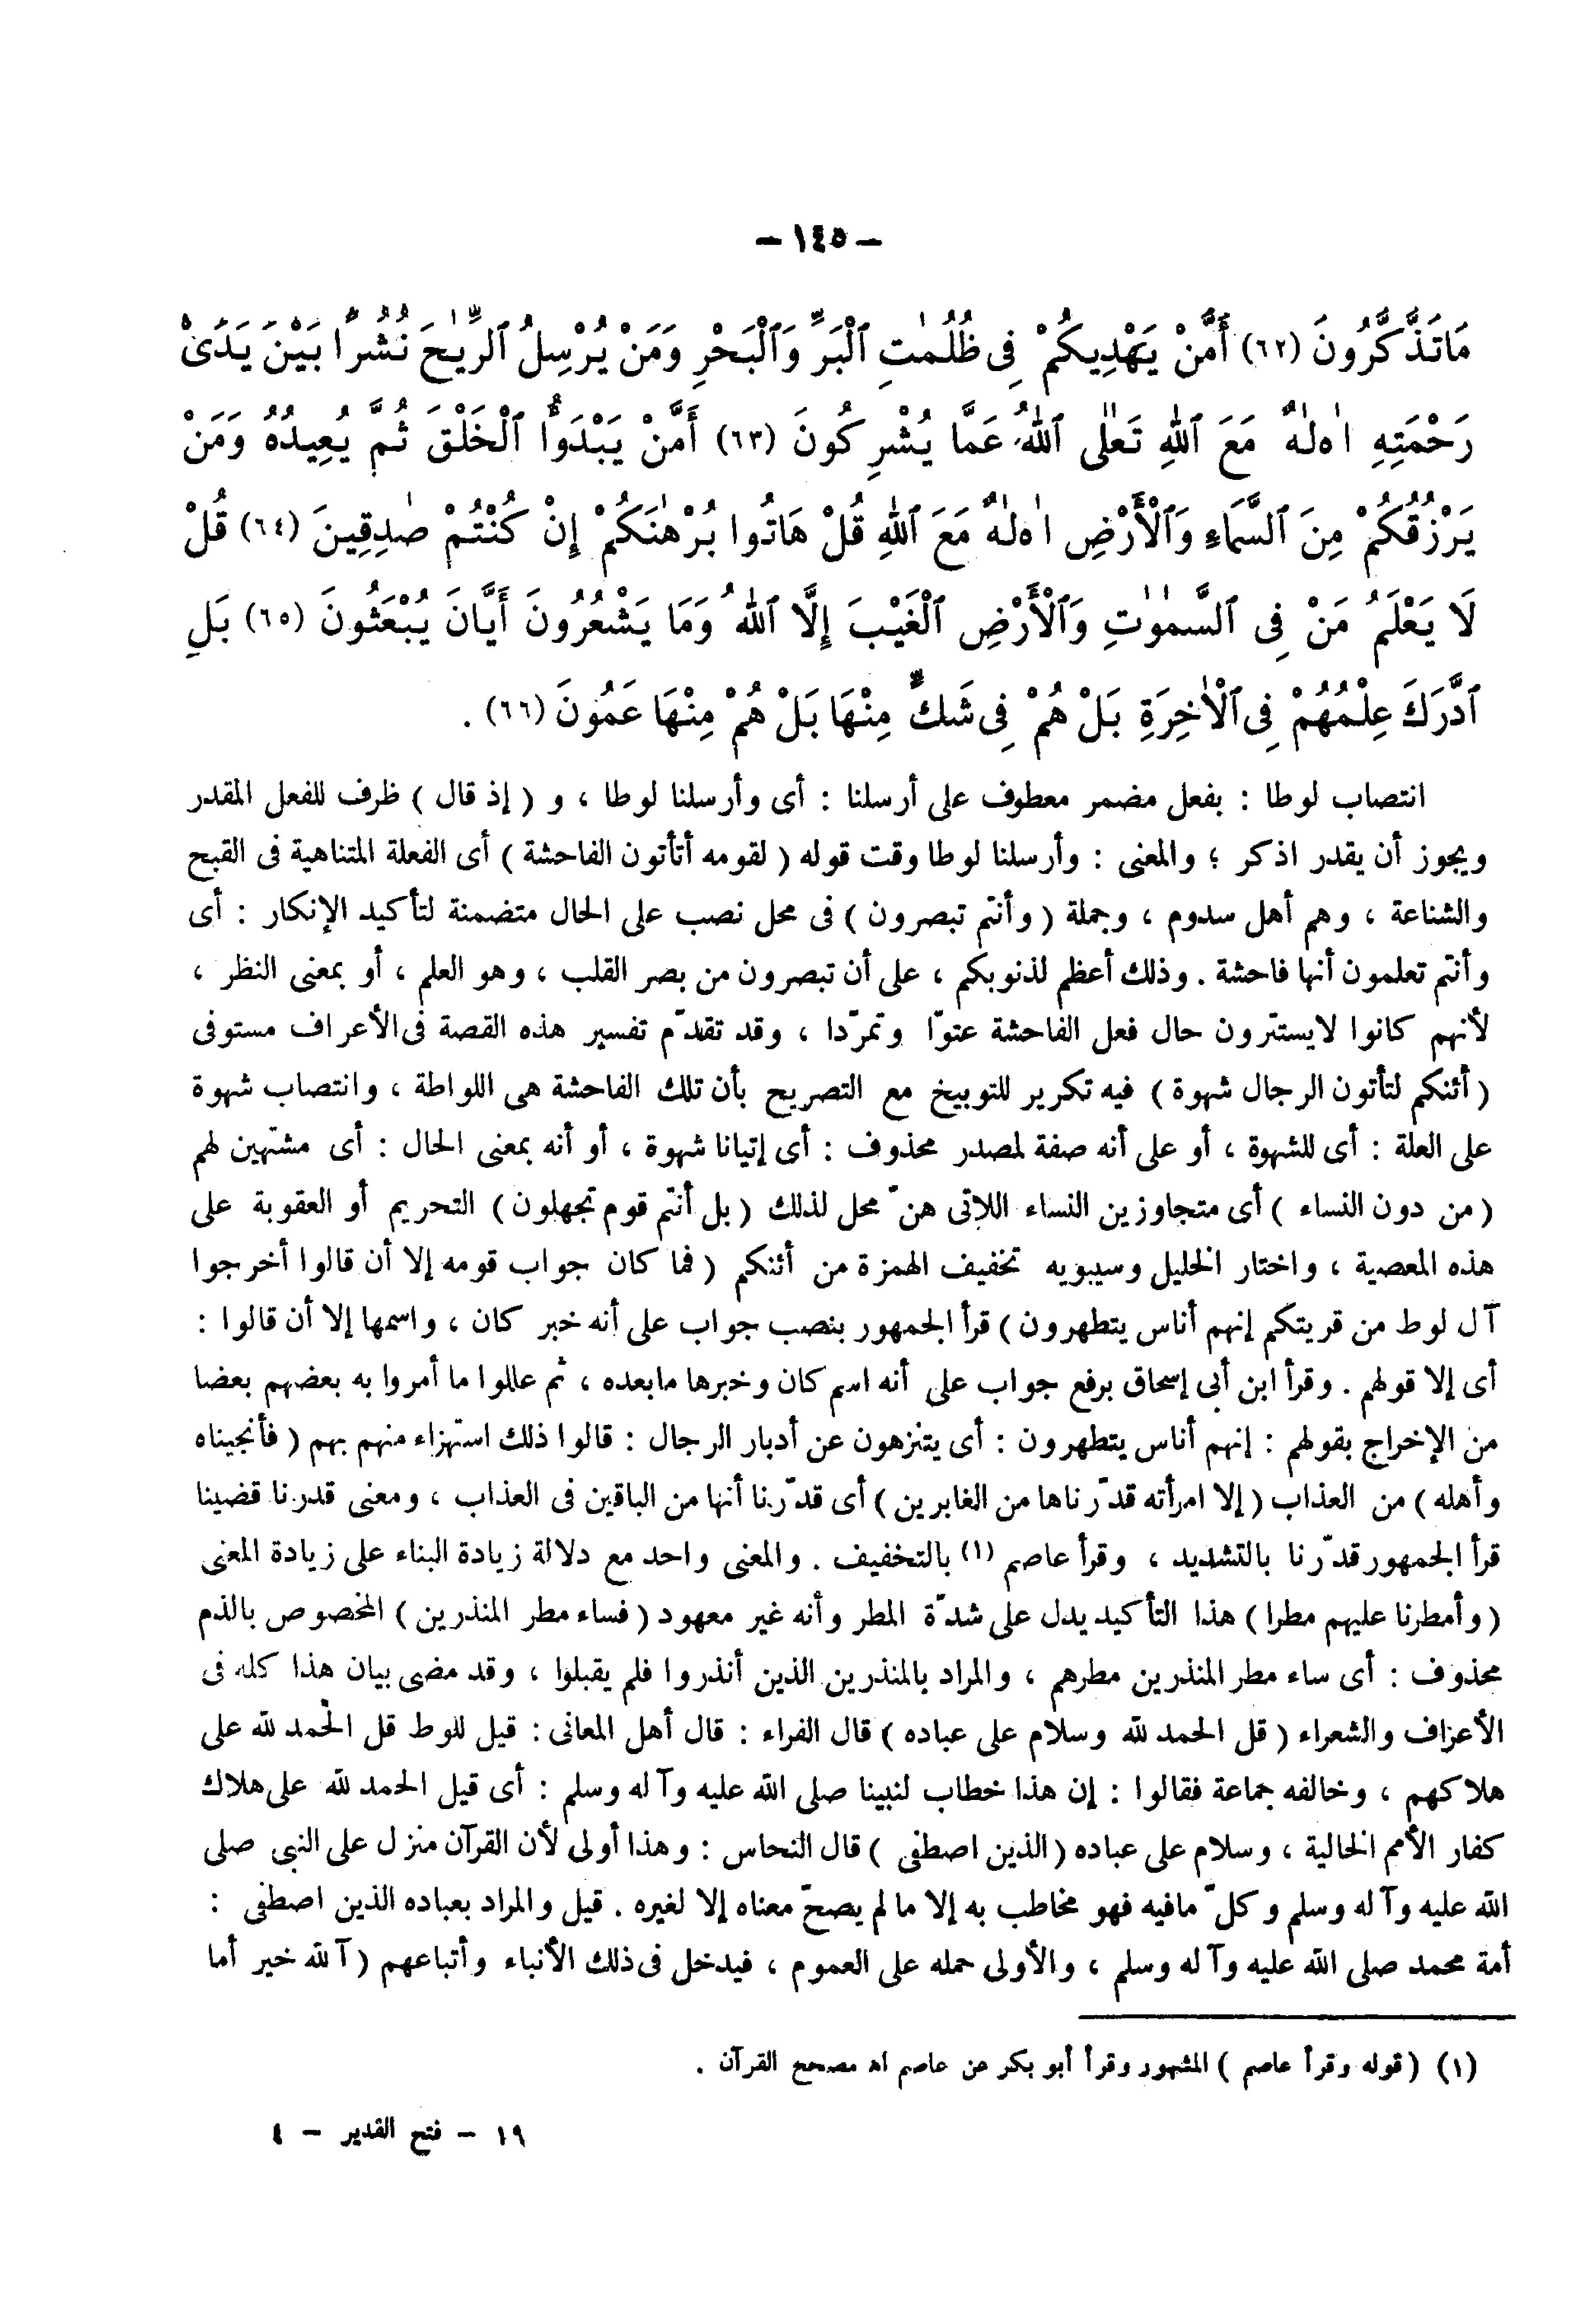 – ١٤٥ –
مَا تَذَكَّرُونَ (٦٢) أَمَّنْ يَهْدِيكُمْ فِى ظُلُمٰتِ ٱلْبَرِّ وَٱلْبَحْرِ وَمَنْ يُرْسِلُ ٱلرِّيٰحَ نُشُرًا بَيْنَ يَدَىْ
رَحْمَتِهِ اٰهلٰهٌ مَعَ ٱللهِ تَعٰلٰى ٱللهُ عَمَّا يُشْرِكُونَ (٦٣) أَمَّنْ يَبْدَؤُا ٱلْخَلْقَ ثُمَّ يُعِيدُهُ وَمَنْ
يَرْزُقُكُمْ مِنَ ٱلسَّمَاءِ وَٱلْأَرْضِ اٰهلٰهٌ مَعَ ٱللهِ قُلْ هَاتُوا بُرْهٰنَكُمْ إِنْ كُنْتُمْ صٰدِقِينَ (٦٤) قُلْ
لَا يَعْلَمُ مَنْ فِى ٱلسَّمٰوٰتِ وَٱلْأَرْضِ ٱلْغَيْبَ إِلَّا ٱللهُ وَمَا يَشْعُرُونَ أَيَّانَ يُبْعَثُونَ (٦٥) بَلِ
ٱدَّرَكَ عِلْمُهُمْ فِى ٱلْاٰخِرَةِ بَلْ هُمْ فِى شَكٍّ مِنْهَا بَلْ هُمْ مِنْهَا عَمُونَ (٦٦) .
انتصاب لوطا : بفعل مضمر معطوف على أرسلنا : أى وأرسلنا لوطا ، و ( إذ قال ) ظرف للفعل المقدر
ويجوز أن يقدر اذكر ؛ والمعنى : وأرسلنا لوطا وقت قوله ( لقومه أتأتون الفاحشة ) أى الفعلة المتناهية فى القبح
والشناعة ، وهم أهل سدوم ، وجملة ( وأنتم تبصرون ) فى محل نصب على الحال متضمنة لتأكيد الإنكار : أى
وأنتم تعلمون أنها فاحشة . وذلك أعظم لذنوبكم ، على أن تبصرون من بصر القلب ، وهو العلم ، أو بمعنى النظر ،
لأنهم كانوا لايستترون حال فعل الفاحشة عتوّا وتمرّدا ، وقد تقدّم تفسير هذه القصة فى الأعراف مستوفى
( أئنكم لتأتون الرجال شهوة ) فيه تكرير للتوبيخ مع التصريح بأن تلك الفاحشة هى اللواطة ، وانتصاب شهوة
على العلة : أى للشهوة ، أو على أنه صفة لمصدر محذوف : أى إتيانا شهوة ، أو أنه بمعنى الحال : أى مشتهين لهم
( من دون النساء ) أى متجاوزين النساء اللاتى هنّ محل لذلك ( بل أنتم قوم تجهلون ) التحريم أو العقوبة على
هذه المعصية ، واختار الخليل وسيبويه تخفيف الهمزة من أئنكم ( فما كان جواب قومه إلا أن قالوا أخرجوا
آل لوط من قريتكم إنهم أناس يتطهرون ) قرأ الجمهور بنصب جواب على أنه خبر كان ، واسمها إلا أن قالوا :
أى إلا قولهم . وقرأ ابن أبى إسحاق برفع جواب على أنه اسم كان وخبرها مابعده ، ثم عللوا ما أمروا به بعضهم بعضا
من الإخراج بقولهم : إنهم أناس يتطهرون : أى يتنزهون عن أدبار الرجال : قالوا ذلك استهزاء منهم بهم ( فأنجيناه
وأهله ) من العذاب ( إلا امرأته قدّرناها من الغابرين ) أى قدّرنا أنها من الباقين فى العذاب ، ومعنى قدرنا قضينا
قرأ الجمهور قدّرنا بالتشديد ، وقرأ عاصم (١) بالتخفيف . والمعنى واحد مع دلالة زيادة البناء على زيادة المعنى
( وأمطرنا عليهم مطرا ) هذا التأكيد يدل على شدّة المطر وأنه غير معهود ( فساء مطر المنذرين ) المخصوص بالذم
محذوف : أى ساء مطر المنذرين مطرهم ، والمراد بالمنذرين الذين أنذروا فلم يقبلوا ، وقد مضى بيان هذا كله فى
الأعراف والشعراء ( قل الحمد لله وسلام على عباده ) قال الفراء : قال أهل المعانى : قيل للوط قل الحمد لله على
هلاكهم ، وخالفه جماعة فقالوا : إن هذا خطاب لنبينا صلى الله عليه وآله وسلم : أى قيل الحمد لله على هلاك
كفار الأمم الخالية ، وسلام على عباده ( الذين اصطفى ) قال النحاس : وهذا أولى لأن القرآن منزل على النبى صلى
الله عليه وآله وسلم وكلّ مافيه فهو مخاطب به إلا ما لم يصحّ معناه إلا لغيره . قيل والمراد بعباده الذين اصطفى :
أمة محمد صلى الله عليه وآله وسلم ، والأولى حمله على العموم ، فيدخل فى ذلك الأنباء وأتباعهم ( آلله خير أما
(١) ( قوله وقرأ عاصم ) المشهور وقرأ أبو بكر عن عاصم اه مصحح القرآن .
١٩ – فتح القدير – ٤